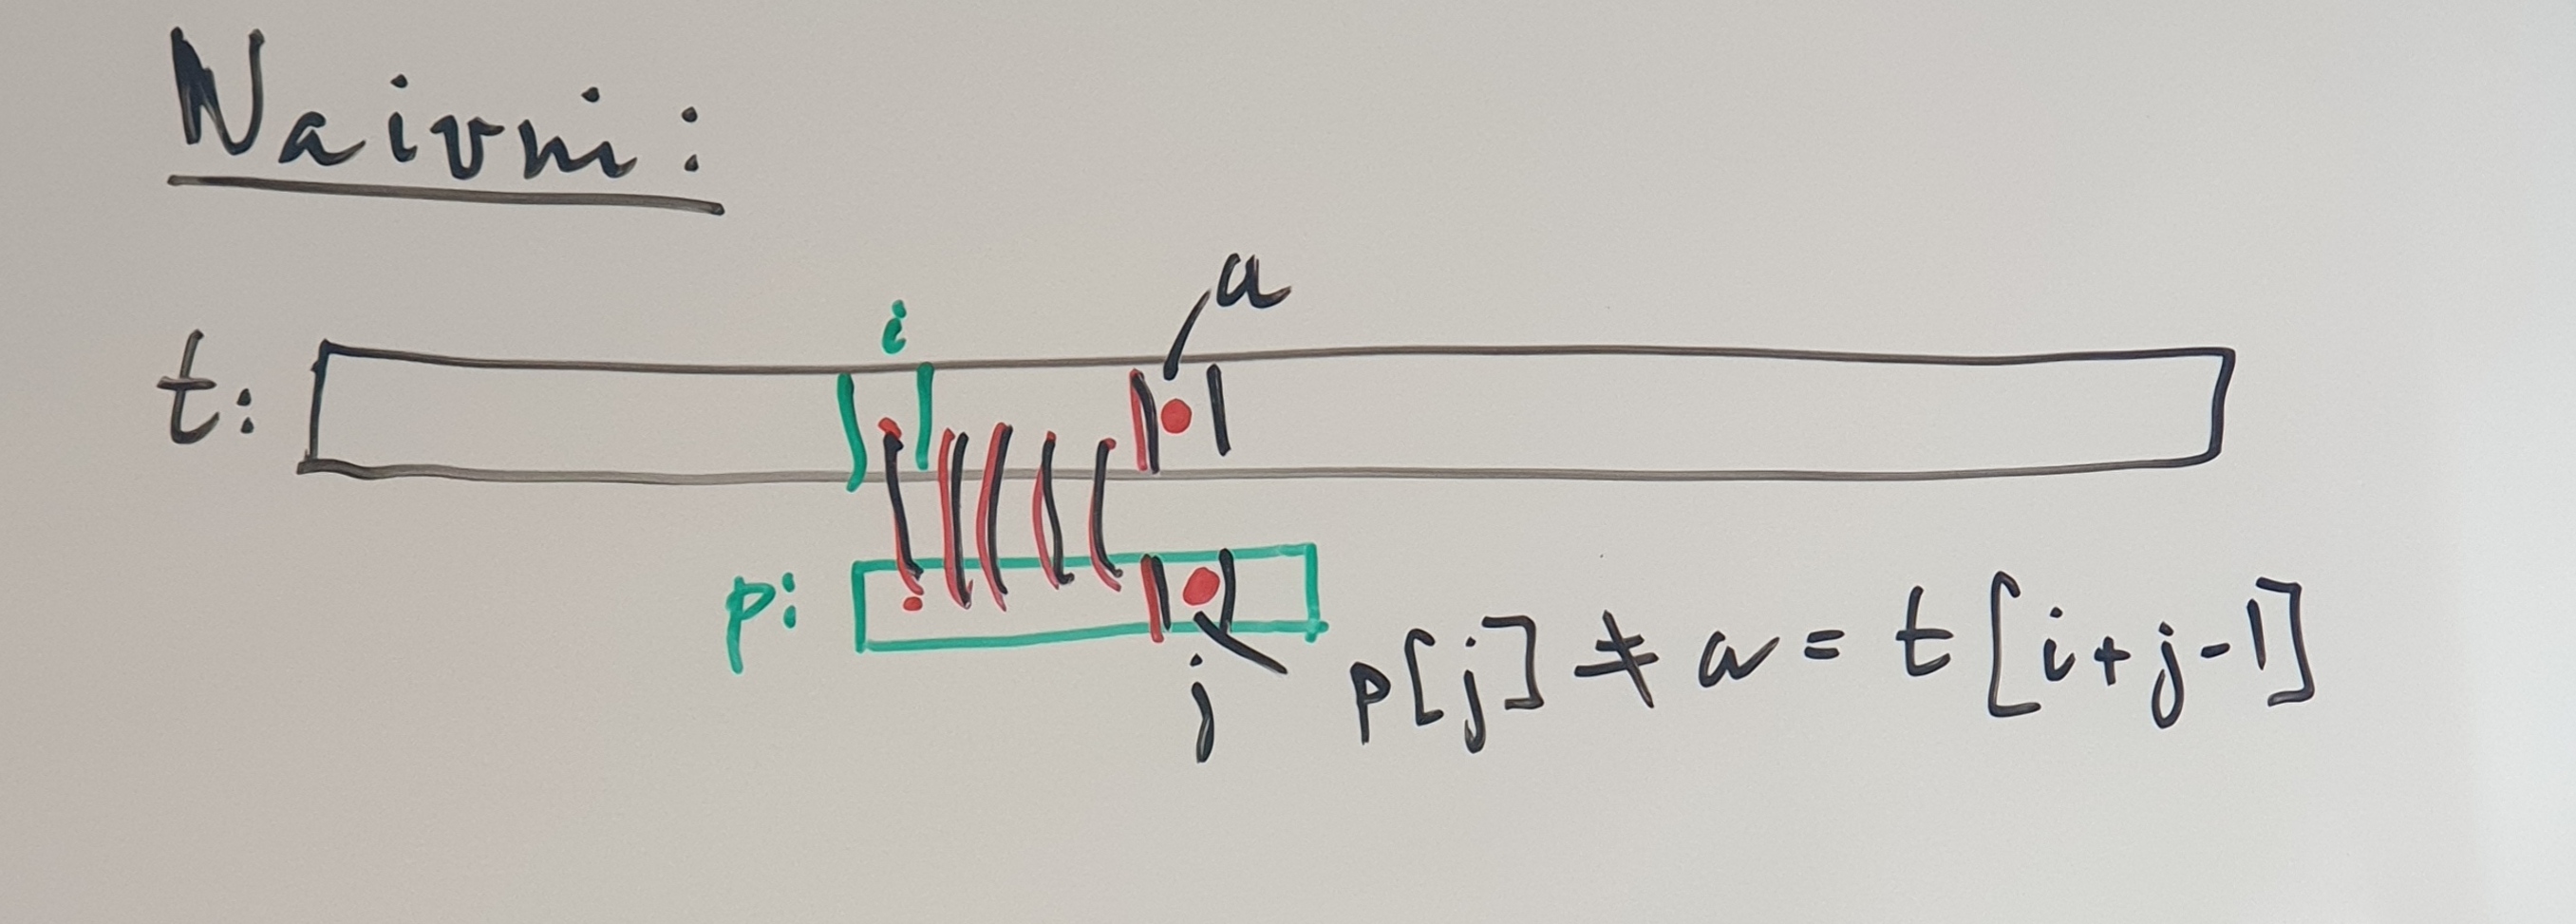 Naivni:
a
i
t:
p:
j
p[j] ≠ a = t[i+j-1]